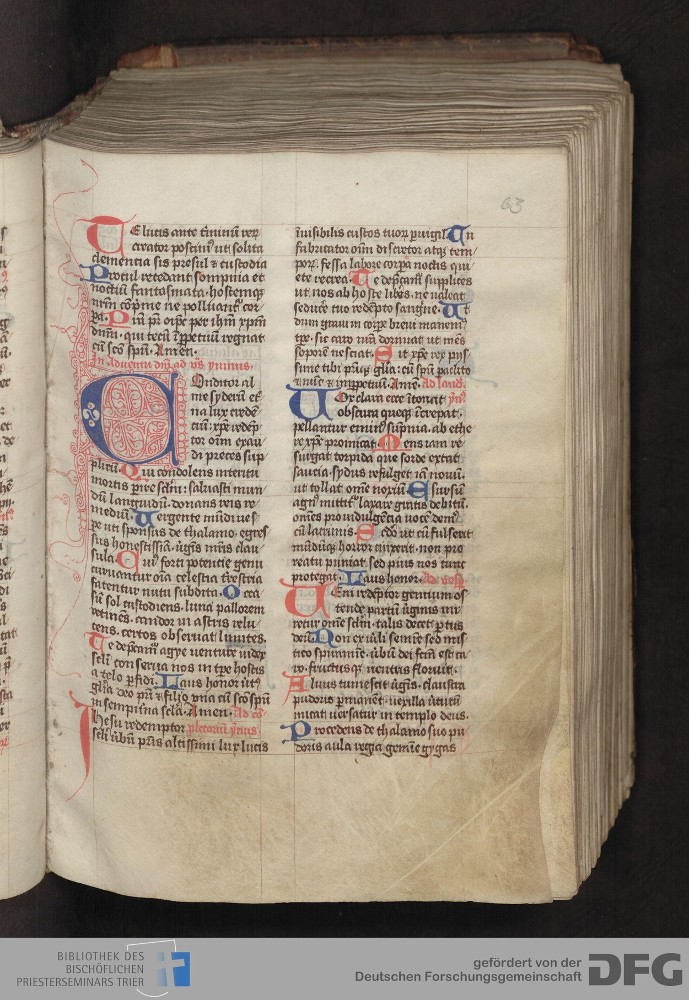 63
TE lucis ante t̄minū reꝝ
creator poscim⁹ ut solita
clementia sis presul ⁊ custodia
Procul recedant sompnia et
noctiū fantasmata · hostemqꝫ
nr̄m cōp̄me ne polluant᷑ cor
pa. Presta pr̄ oīp̄s per ihm̄ xp̄m
dn̄m · qui tecū ī ꝑpetuū regnat
cū sc̄o spū. Amen.
In Adventu dn̄i ad vs̄ ymnus.
COnditor al
me syderū et̄
na lux crede
tiū xp̄e redēp
tor oīm exau
di preces sup
plicū. Qui condolens interitu
mortis ꝑire sc̄lm̄: saluasti mun
dū languidū · donans reis re
mediū. Uergente mūdi uesp
e uti sponsus de thalamo · egres
sus honestissīa · ūgīs mr̄is clau
sula. Cui⁹ forti potentie genu
curuantur oīa · celestia t̄restria
fatentur nutu subdita. Occa
sū sol custodiens · luna pallorem
retinēs · candor in astris relu
cens · certos obseruat limites.
Te dep̄camur agye uenture iudex
sc̄li · conserua nos in tp̄e hostis
a telo ꝑfidi. Laus honor uirt⁹
gl̄ia deo pr̄i ⁊ filio una cū sc̄o spū
in sempit̄na sc̄la. Amen. Ad cō
Ihesu redemptor pletoriū ymus
sc̄li uerbū pr̄is altissimi lux lucis
īuisibilis custos tuoꝝ ꝑuigil. Tu
fabricator oīm discretor atqꝫ tem
porū · fessa labore corꝑa noctis qui
ete recrea. Te dep̄cam᷑ supplices
ut nos ab hoste libēs · ne ualeat
seduc̄e tuo redēpto sangūe. Ut
dum graui in corꝑe breui manem⁹
tp̄e · sic caro nr̄a dormiat ut mēs
soporē nesciat. Sit xp̄e rex pijs
sime tibi pr̄iqꝫ gl̄ia: cū spū paclito
⁊ nūc ⁊ in ꝑpetuū. Amē. Ad laud.
VOx clara ecce ītonat ymn⁹
obscura queqꝫ īcrepat ·
pellantur eminꝰ sūpnia · ab ethe
re xp̄e promicat. Mens iam re
surgat torpida que sorde extat
saucia · sydus refulget iā nouū ·
ut tollat ōme noxiū. Esursū
agn⁹ mittit᷑ laxare gratis debitū
omēs pro īdulgētia uocē dem⁹
cū lacrimis. Sc̄do ut cū fulserit
mūdūqꝫ horror cinxerit · non pro
reatu puniat sed pius nos tunc
protegat. Laus honor. Ad vesp̄.
VEni redēptor gentium os
tende partū ūginis mi
retur omē sc̄lm · talis decet ꝑtus
deū. Non ex uirili semīe sed mis
tico spiramīe · ūbū dei fc̄m est ca
ro · fructusqꝫ uentris floruit.
Aluus tumescit ūgīs · claustra
pudoris ꝑmanēt · uexilla ūtutū
micāt uersatur in templo deus.
Procedens de thalamo suo pu
doris aula regia gemīe gygas
BIBLIOTHEK DES
BISCHÖFLICHEN
PRIESTERSEMINARS TRIER
gefördert von der
Deutschen Forschungsgemeinschaft
DFG